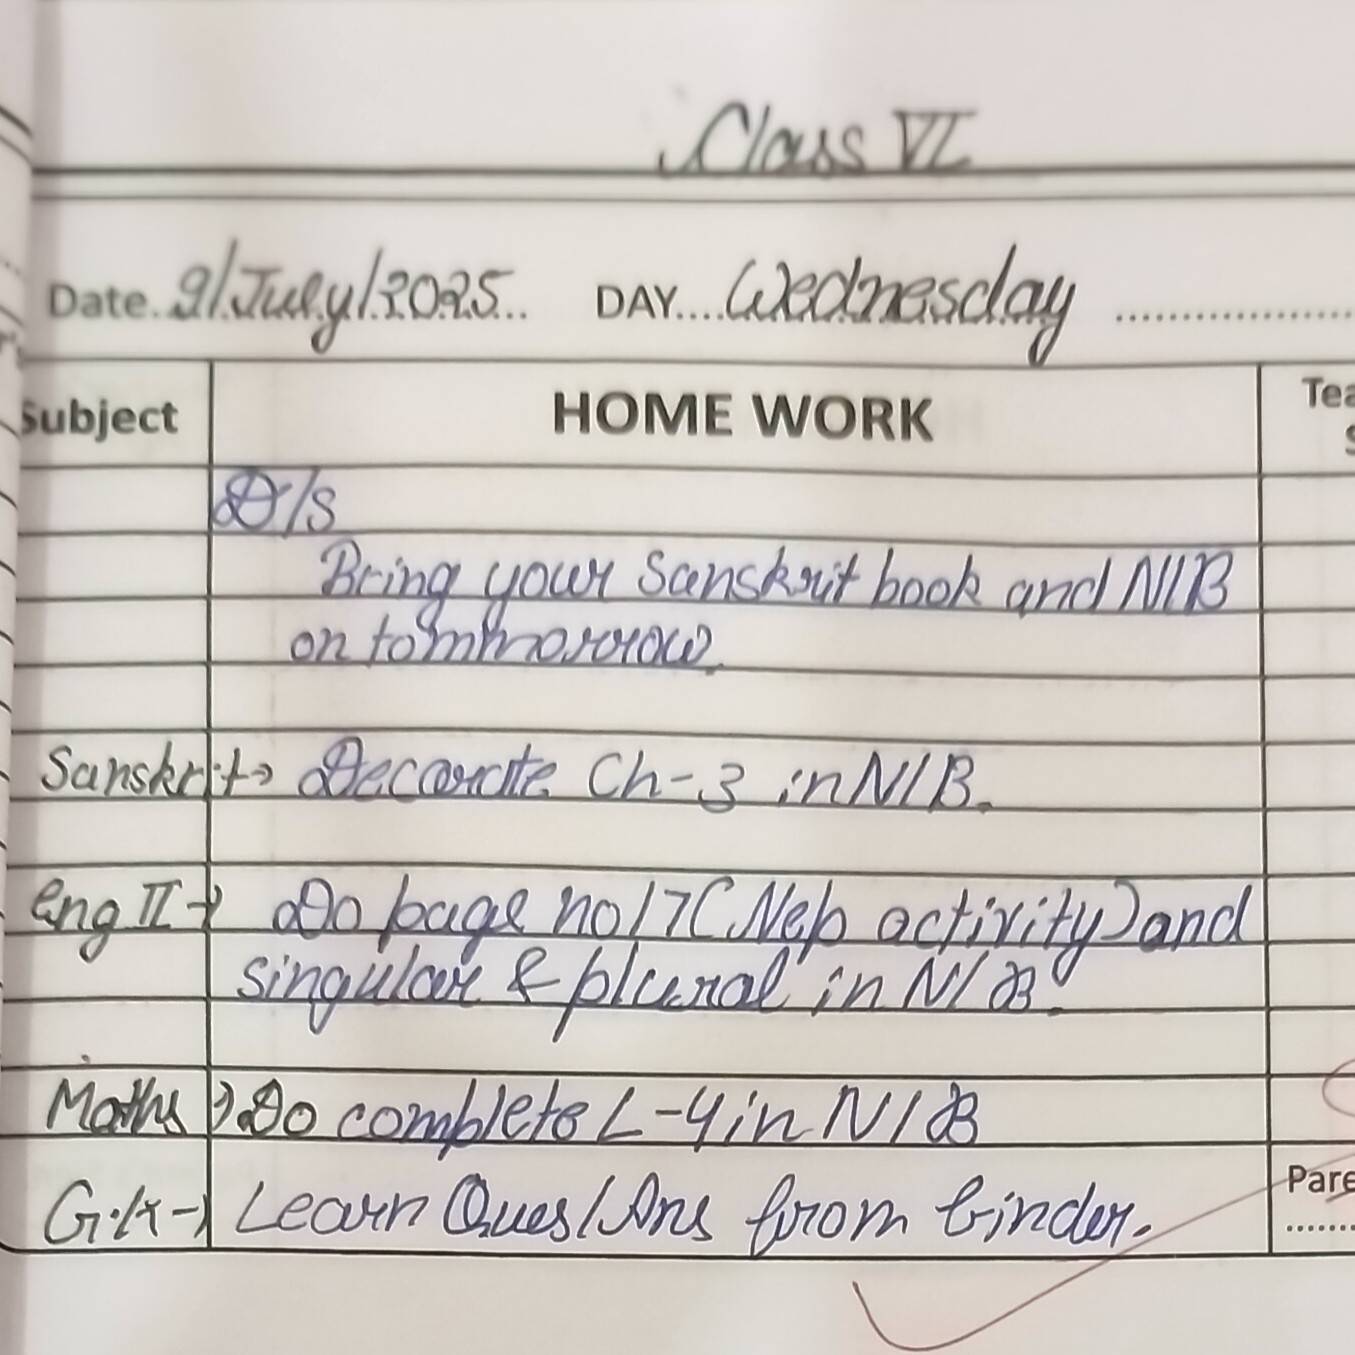 Class VI
Date. 9/July/2025... DAY.... Wednesday ....................
Subject HOME WORK Tea
S
D/S
Bring your Sanskrit book and N/B
on tommorrow.
Sanskrit → Decorate Ch-3 in N/B.
Eng II → Do page no 17 (Nep activity) and
singular & plural in N/B.
Maths → Do complete L-4 in N/B
G.K → Learn Ques/Ans from binder.
Pare
......